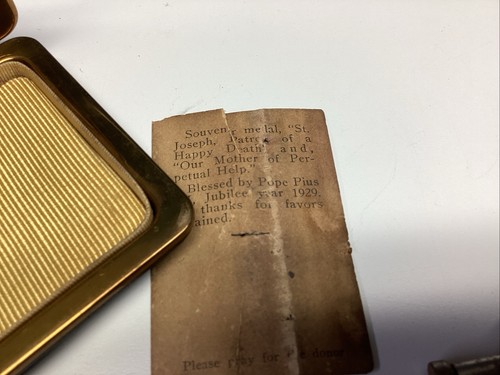 Souvenir medal, "St.
Joseph, Patron of a
Happy Death", and,
"Our Mother of Per-
petual Help."
Blessed by Pope Pius
Jubilee year 1929.
thanks for favors
ained.
Please pray for the donor